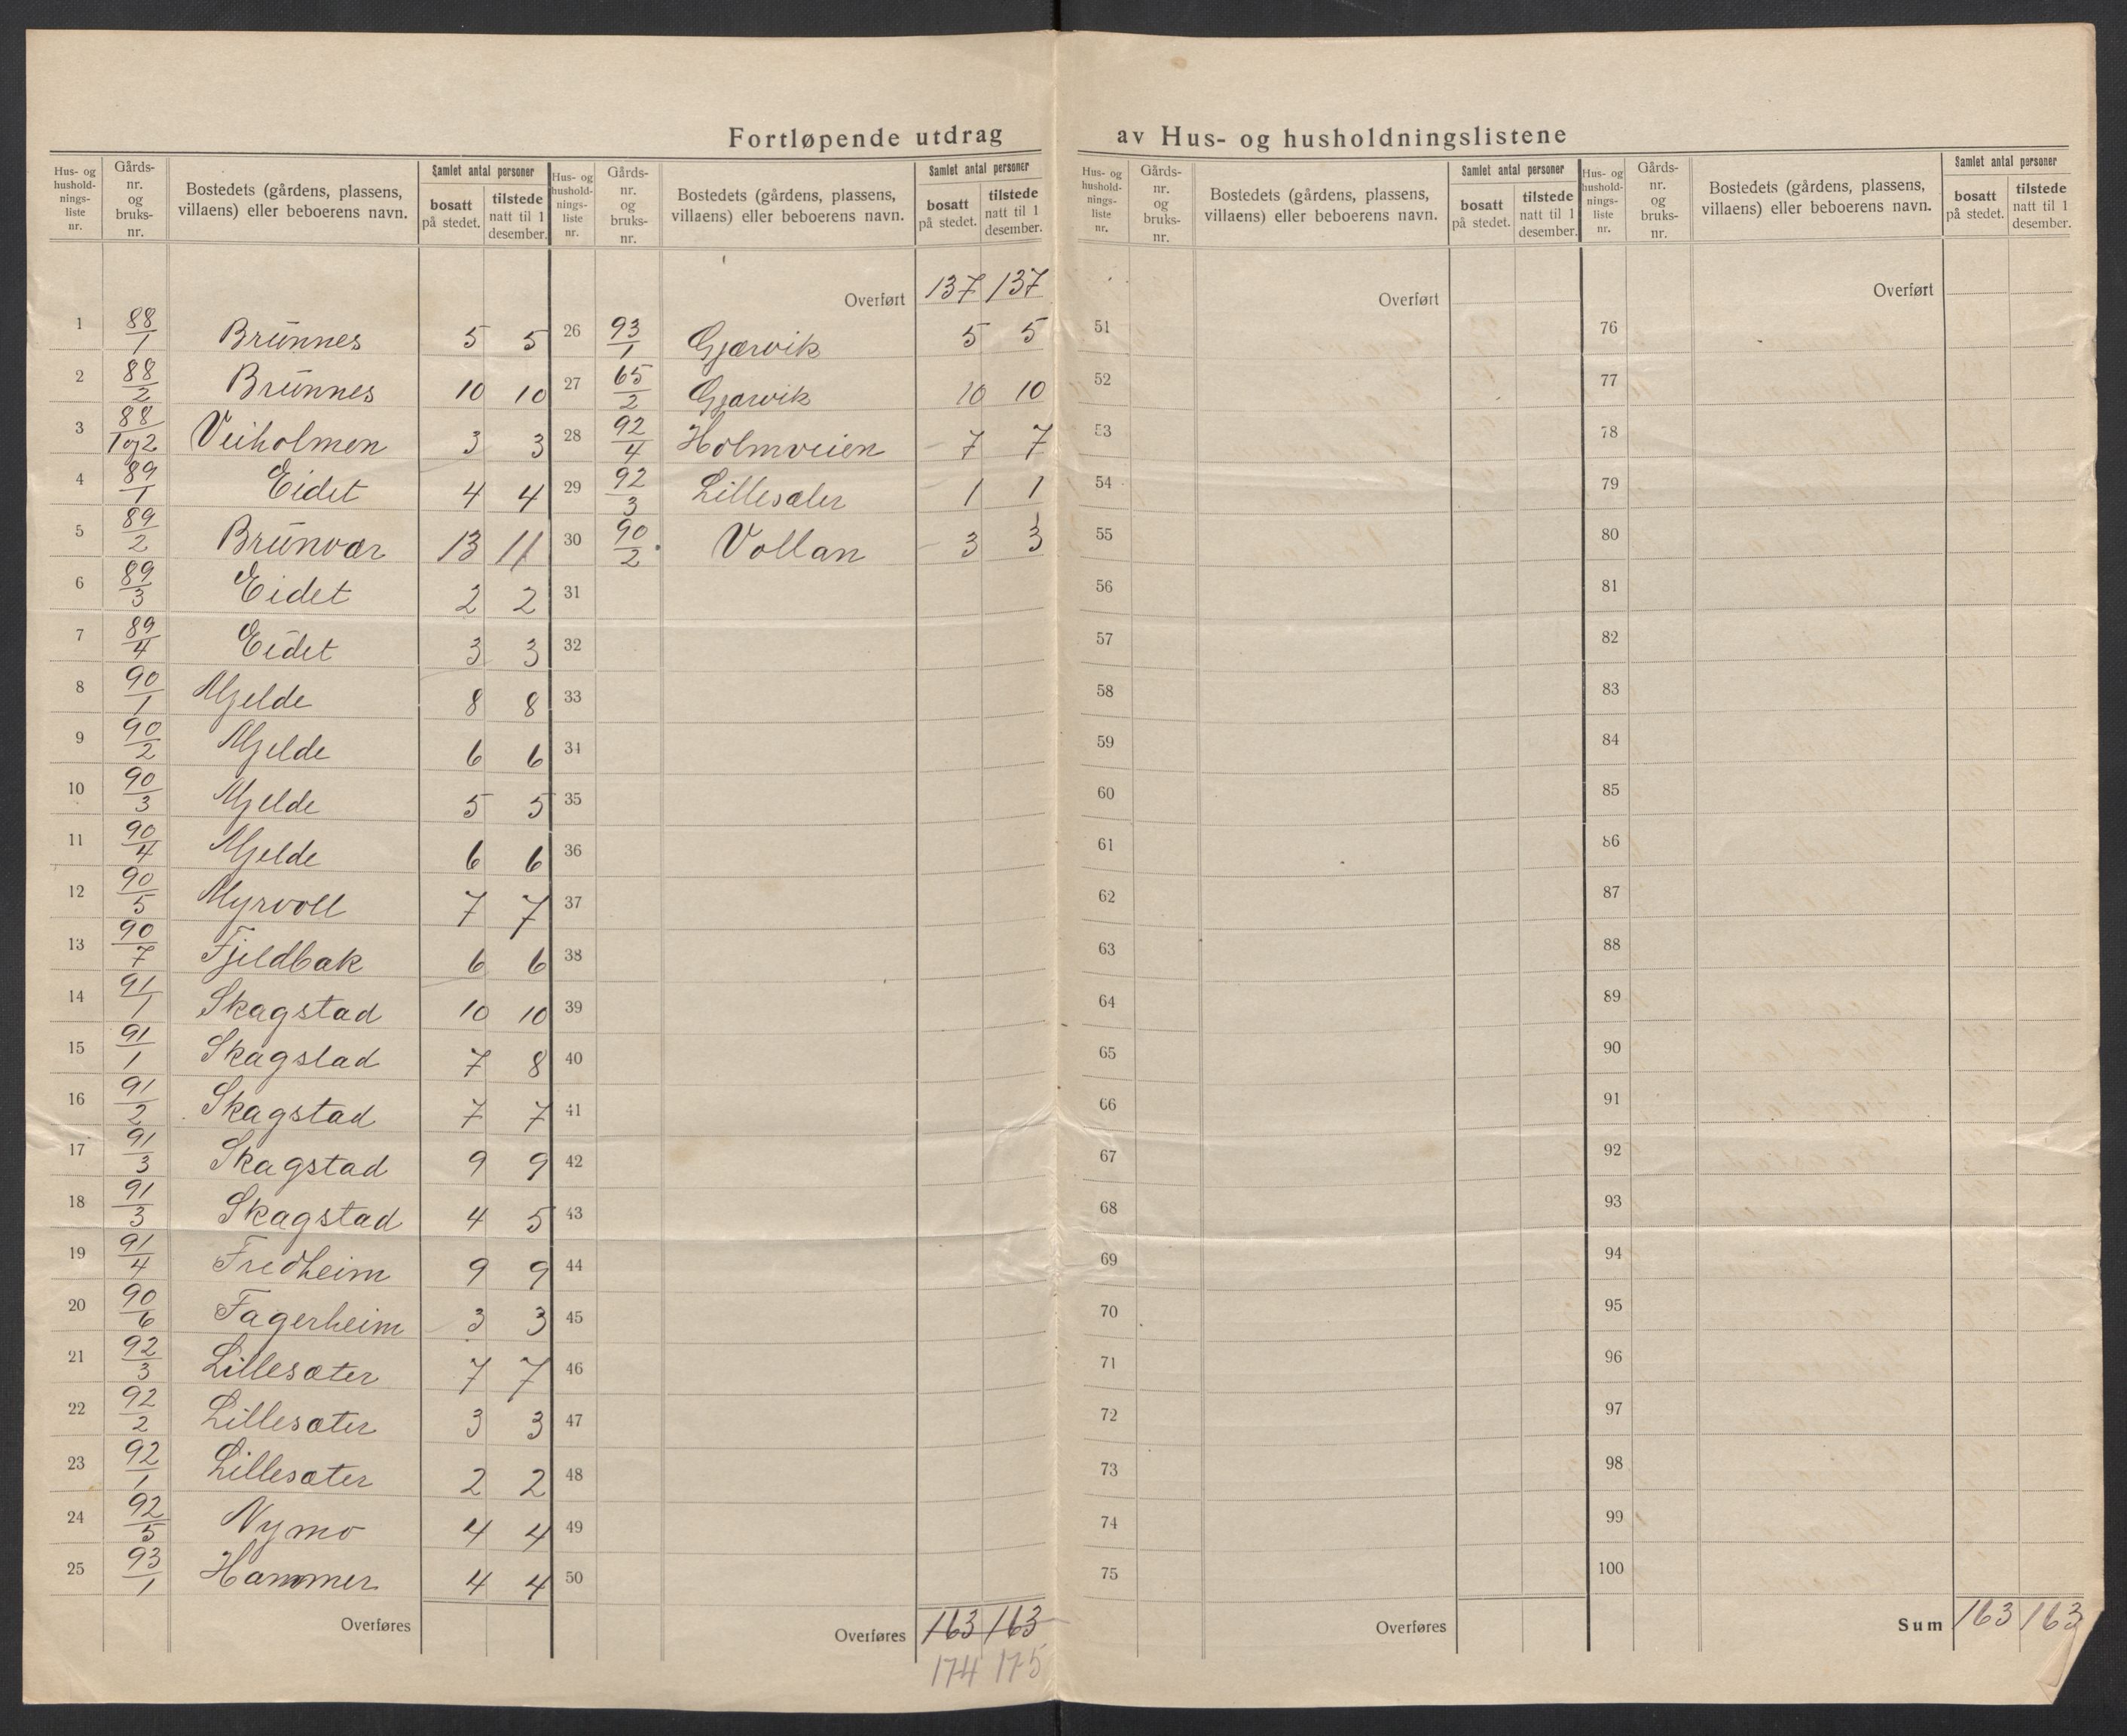 Fortløpende utdrag av Hus- og husholdningslistene
Hus- og hushold-nings-liste nr. | Gårds-nr. og bruks-nr. | Bostedets (gårdens, plassens, villaens) eller beboerens navn. | Samlet antal personer | bosatt på stedet. | tilstede natt til 1 desember.
1 88/1 Brunnes 5 5
2 88/2 Brunnes 10 10
3 88/1 og 2 Veiholmen 3 3
4 89/1 Eidet 4 4
5 89/2 Brunvær 13 11
6 89/3 Eidet 2 2
7 89/4 Eidet 3 3
8 90/1 Mjelde 8 8
9 90/2 Mjelde 6 6
10 90/3 Mjelde 5 5
11 90/4 Mjelde 6 6
12 90/5 Myrvoll 7 7
13 90/7 Fjeldbak 6 6
14 91/1 Skagstad 10 10
15 91/1 Skagstad 7 8
16 91/2 Skagstad 7 7
17 91/3 Skagstad 9 9
18 91/3 Skagstad 4 5
19 91/4 Fredheim 9 9
20 90/6 Fagerheim 3 3
21 92/3 Lillesæter 7 7
22 92/2 Lillesæter 3 3
23 92/1 Lillesæter 2 2
24 92/5 Nymo 4 4
25 93/1 Hammer 4 4
Overføres
Hus- og hushold-nings-liste nr. | Gårds-nr. og bruks-nr. | Bostedets (gårdens, plassens, villaens) eller beboerens navn. | Samlet antal personer | bosatt på stedet. | tilstede natt til 1 desember.
Overført 137 137
26 93/1 Gjærvik 5 5
27 65/2 Gjærvik 10 10
28 92/4 Holmveien 7 7
29 92/3 Lillesæter 1 1
30 90/2 Vollan 3 3
31
32
33
34
35
36
37
38
39
40
41
42
43
44
45
46
47
48
49
50
Overføres 163 163
174 175
Hus- og hushold-nings-liste nr. | Gårds-nr. og bruks-nr. | Bostedets (gårdens, plassens, villaens) eller beboerens navn. | Samlet antal personer | bosatt på stedet. | tilstede natt til 1 desember.
Overført
51
52
53
54
55
56
57
58
59
60
61
62
63
64
65
66
67
68
69
70
71
72
73
74
75
Overføres
Hus- og hushold-nings-liste nr. | Gårds-nr. og bruks-nr. | Bostedets (gårdens, plassens, villaens) eller beboerens navn. | Samlet antal personer | bosatt på stedet. | tilstede natt til 1 desember.
Overført
76
77
78
79
80
81
82
83
84
85
86
87
88
89
90
91
92
93
94
95
96
97
98
99
100
Sum 163 163